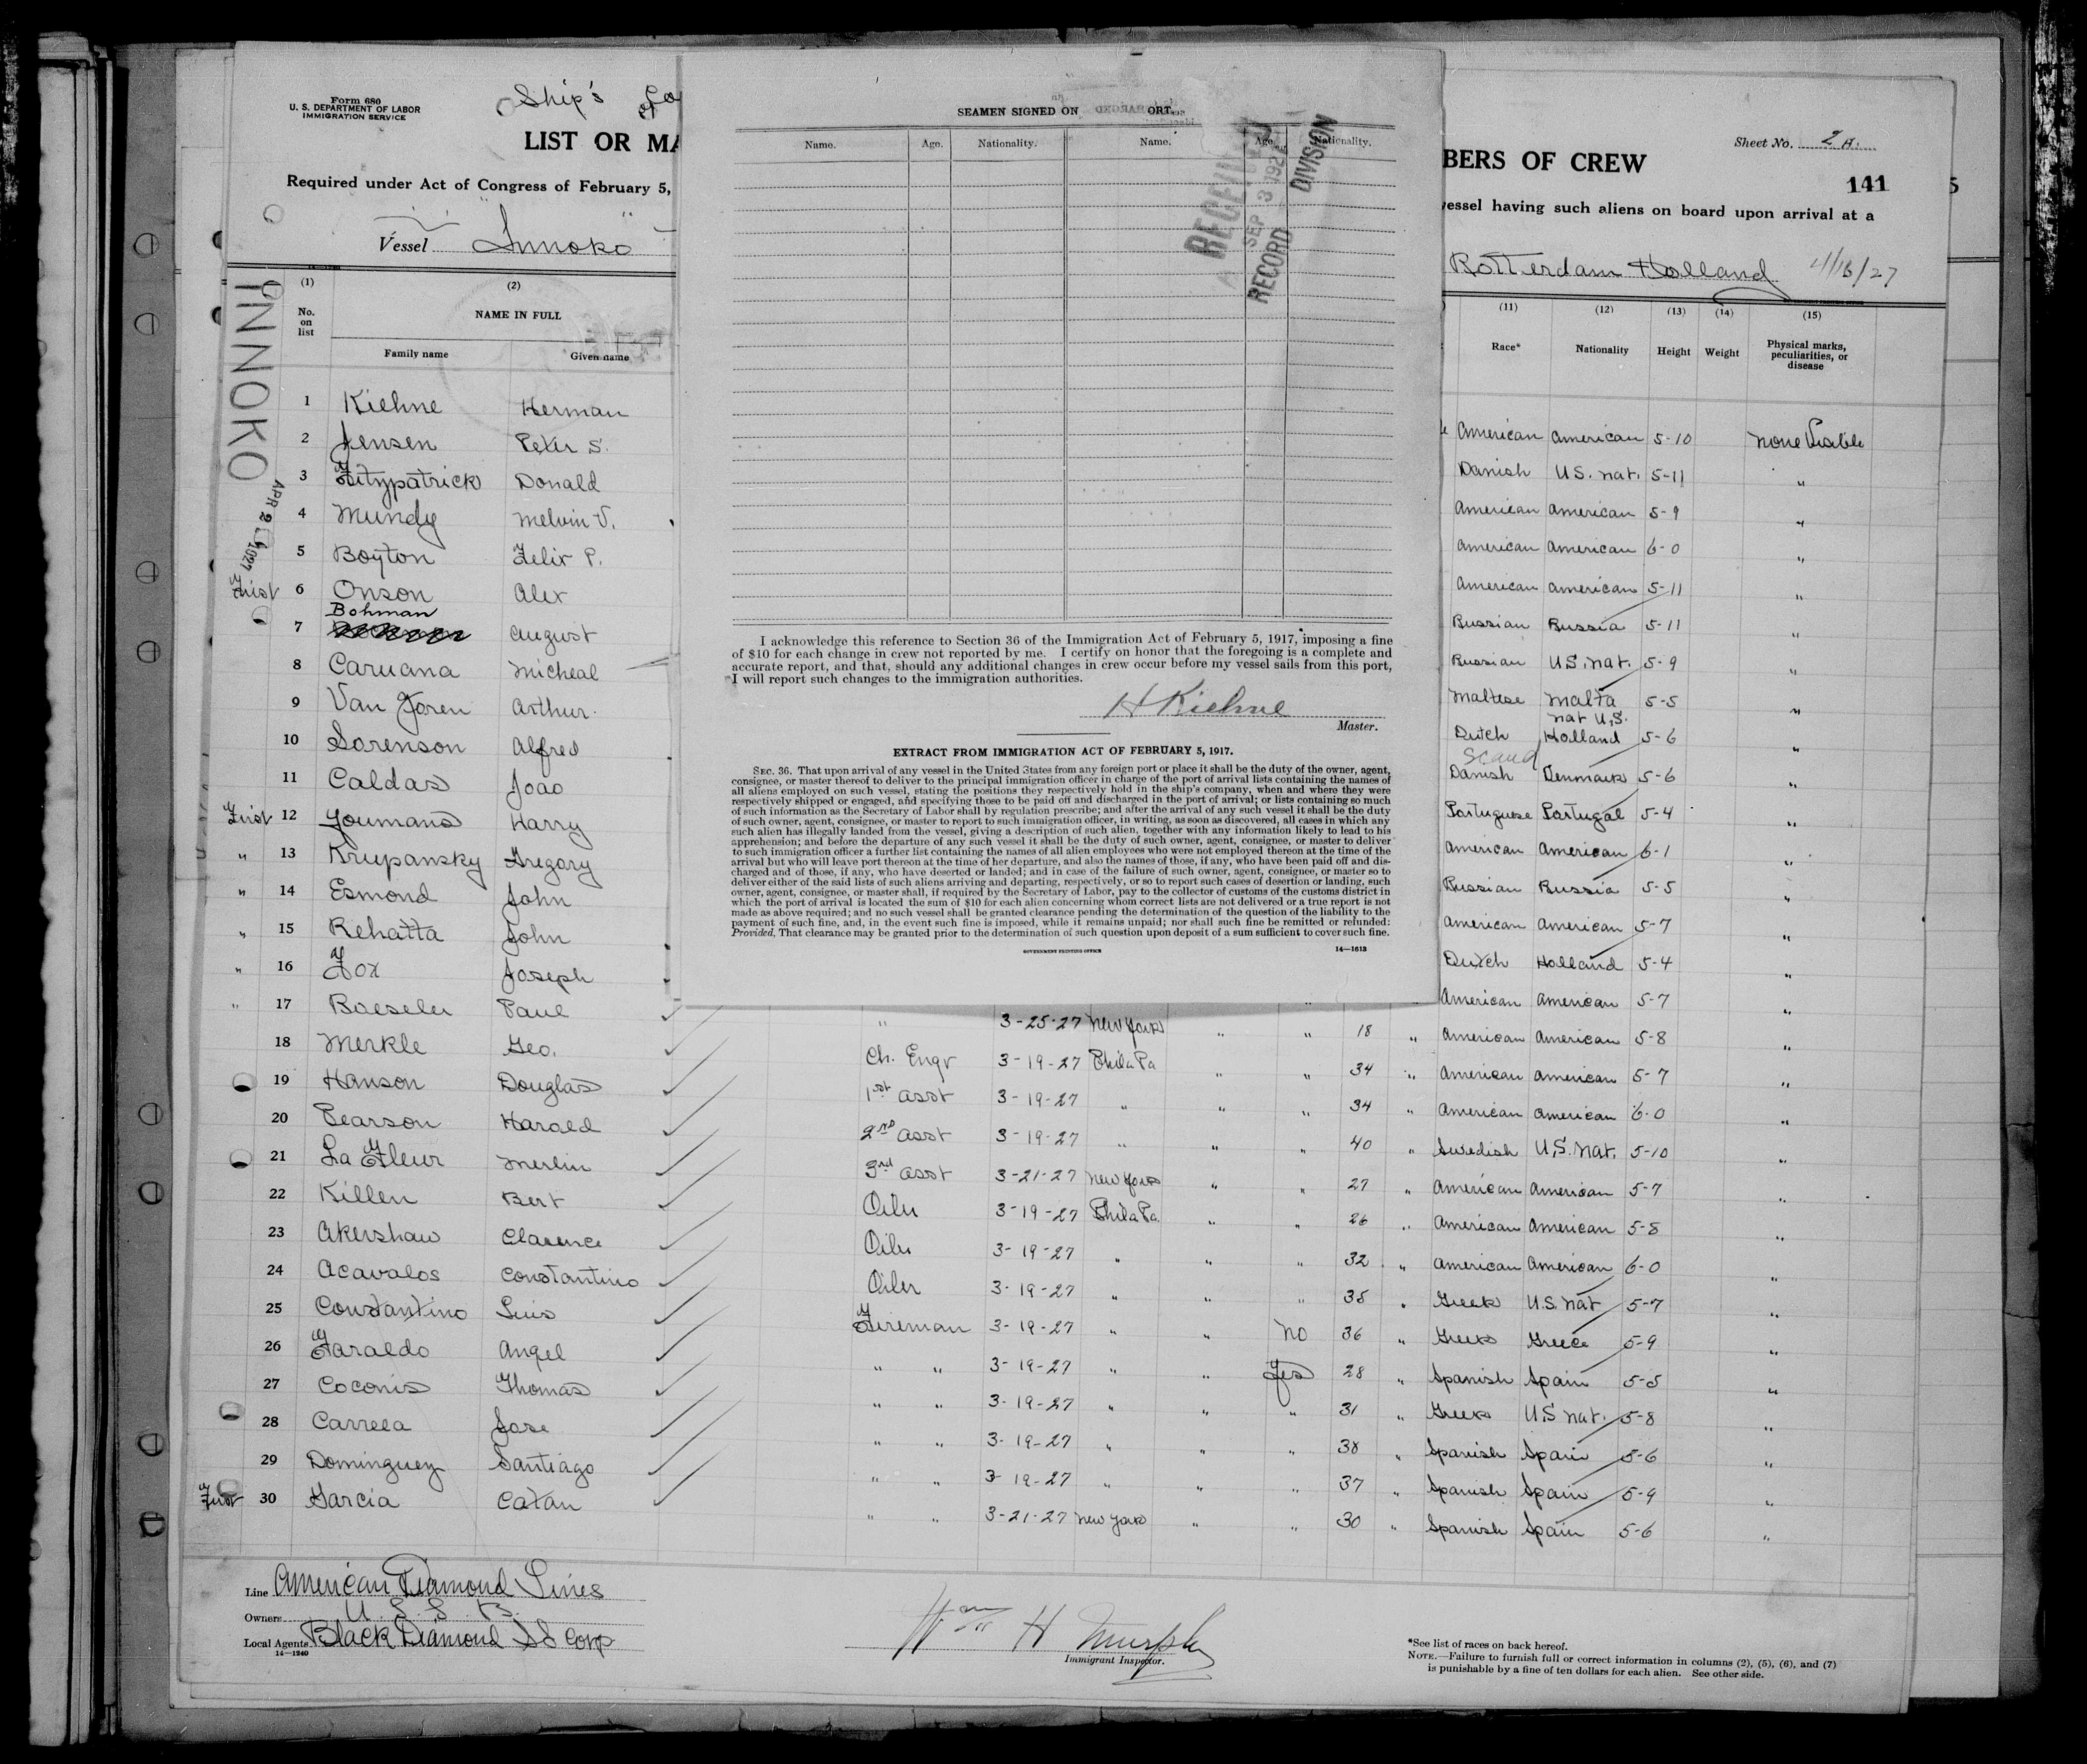 Form 680
U. S. DEPARTMENT OF LABOR
IMMIGRATION SERVICE
Ship's
LIST OR MA
Required under Act of Congress of February 5,
Vessel Innoko
BERS OF CREW
Sheet No. 2A.
141
vessel having such aliens on board upon arrival at a
Rotterdam Holland 4/16/27
INNOKO
APR 2 1927
(1) (2)
No. on list NAME IN FULL
Family name Given name
(11) (12) (13) (14) (15)
Race* Nationality Height Weight Physical marks, peculiarities, or disease
SEAMEN SIGNED ON ORT.
Name. Age. Nationality. Name. Age. Nationality.
RECEIVED
SEP 3 192
RECORD DIVISION
I acknowledge this reference to Section 36 of the Immigration Act of February 5, 1917, imposing a fine
of $10 for each change in crew not reported by me. I certify on honor that the foregoing is a complete and
accurate report, and that, should any additional changes in crew occur before my vessel sails from this port,
I will report such changes to the immigration authorities.
H Kiehne
Master.
EXTRACT FROM IMMIGRATION ACT OF FEBRUARY 5, 1917.
SEC. 36. That upon arrival of any vessel in the United States from any foreign port or place it shall be the duty of the owner, agent,
consignee, or master thereof to deliver to the principal immigration officer in charge of the port of arrival lists containing the names of
all aliens employed on such vessel, stating the positions they respectively hold in the ship's company, when and where they were
respectively shipped or engaged, and specifying those to be paid off and discharged in the port of arrival; or lists containing so much
of such information as the Secretary of Labor shall by regulation prescribe; and after the arrival of any such vessel it shall be the duty
of such owner, agent, consignee, or master to report to such immigration officer, in writing, as soon as discovered, all cases in which any
such alien has illegally landed from the vessel, giving a description of such alien, together with any information likely to lead to his
apprehension; and before the departure of any such vessel it shall be the duty of such owner, agent, consignee, or master to deliver
to such immigration officer a further list containing the names of all alien employees who were not employed thereon at the time of the
arrival but who will leave port thereon at the time of her departure, and also the names of those, if any, who have been paid off and dis-
charged and of those, if any, who have deserted or landed; and in case of the failure of such owner, agent, consignee, or master so to
deliver either of the said lists of such aliens arriving and departing, respectively, or so to report such cases of desertion or landing, such
owner, agent, consignee, or master shall, if required by the Secretary of Labor, pay to the collector of customs of the customs district in
which the port of arrival is located the sum of $10 for each alien concerning whom correct lists are not delivered or a true report is not
made as above required; and no such vessel shall be granted clearance pending the determination of the question of the liability to the
payment of such fine, and, in the event such fine is imposed, while it remains unpaid; nor shall such fine be remitted or refunded:
Provided, That clearance may be granted prior to the determination of such question upon deposit of a sum sufficient to cover such fine.
GOVERNMENT PRINTING OFFICE 14—1613
1 Kiehne Herman American American 5-10 none Visible
2 Jensen Peter S. Danish U.S. nat. 5-11 "
3 Fitzpatrick Donald American American 5-9 "
4 Mundy Melvin V. American American 6-0 "
5 Boyton Felix P. American American 5-11 "
First 6 Onson Alex Russian Russia 5-11 "
7 Bohman August Russian U.S. nat. 5-9 "
8 Caruana Micheal Maltese Malta 5-5 "
nat U.S.
9 Van Joren Arthur Dutch Holland 5-6 "
Scand
10 Sorenson Alfred Danish Denmark 5-6 "
11 Caldas Joao Portuguese Portugal 5-4 "
First 12 Youmans Harry American American 6-1 "
" 13 Krupansky Gregory Russian Russia 5-5 "
" 14 Esmond John American American 5-7 "
" 15 Rehatta John Dutch Holland 5-4 "
" 16 Fox Joseph American American 5-7 "
" 17 Baeseler Paul " 3-25-27 New York " " 18 " American American 5-8 "
18 Merkle Geo. Ch. Engr 3-19-27 Phila Pa " " 34 " American American 5-7 "
19 Hanson Douglas 1st asst 3-19-27 " " " 34 " American American 6-0 "
20 Pearson Harold 2nd asst 3-19-27 " " " 40 " Swedish U.S. nat. 5-10 "
21 La Fleur Merlin 3rd asst 3-21-27 New York " " 27 " American American 5-7 "
22 Killen Bert Oiler 3-19-27 Phila Pa " " 26 " American American 5-8 "
23 Akershaw Clarence Oiler 3-19-27 " " " 32 " American American 6-0 "
24 Acavalos Constantino Oiler 3-19-27 " " " 38 " Greek U.S. nat 5-7 "
25 Constantino Luis Fireman 3-19-27 " " no 36 " Greek Greece 5-9 "
26 Faraldo Angel " " 3-19-27 " " Yes 28 " Spanish Spain 5-5 "
27 Coconis Thomas " " 3-19-27 " " " 31 " Greek U.S nat. 5-8 "
28 Carreea Jose " " 3-19-27 " " " 38 " Spanish Spain 5-6 "
29 Dominguez Santiago " " 3-19-27 " " " 37 " Spanish Spain 5-9 "
First 30 Garcia Catan " " 3-21-27 New York " " 30 " Spanish Spain 5-6 "
Line American Diamond Lines
Owners U. S. S. B.
Local Agents Black Diamond SS Corp
14—1240
Wm H Murphy
Immigrant Inspector.
*See list of races on back hereof.
NOTE.—Failure to furnish full or correct information in columns (2), (5), (6), and (7)
is punishable by a fine of ten dollars for each alien. See other side.